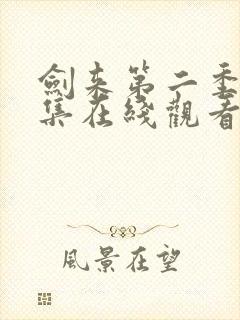 劍来第二季
集在线觀看
風景在望